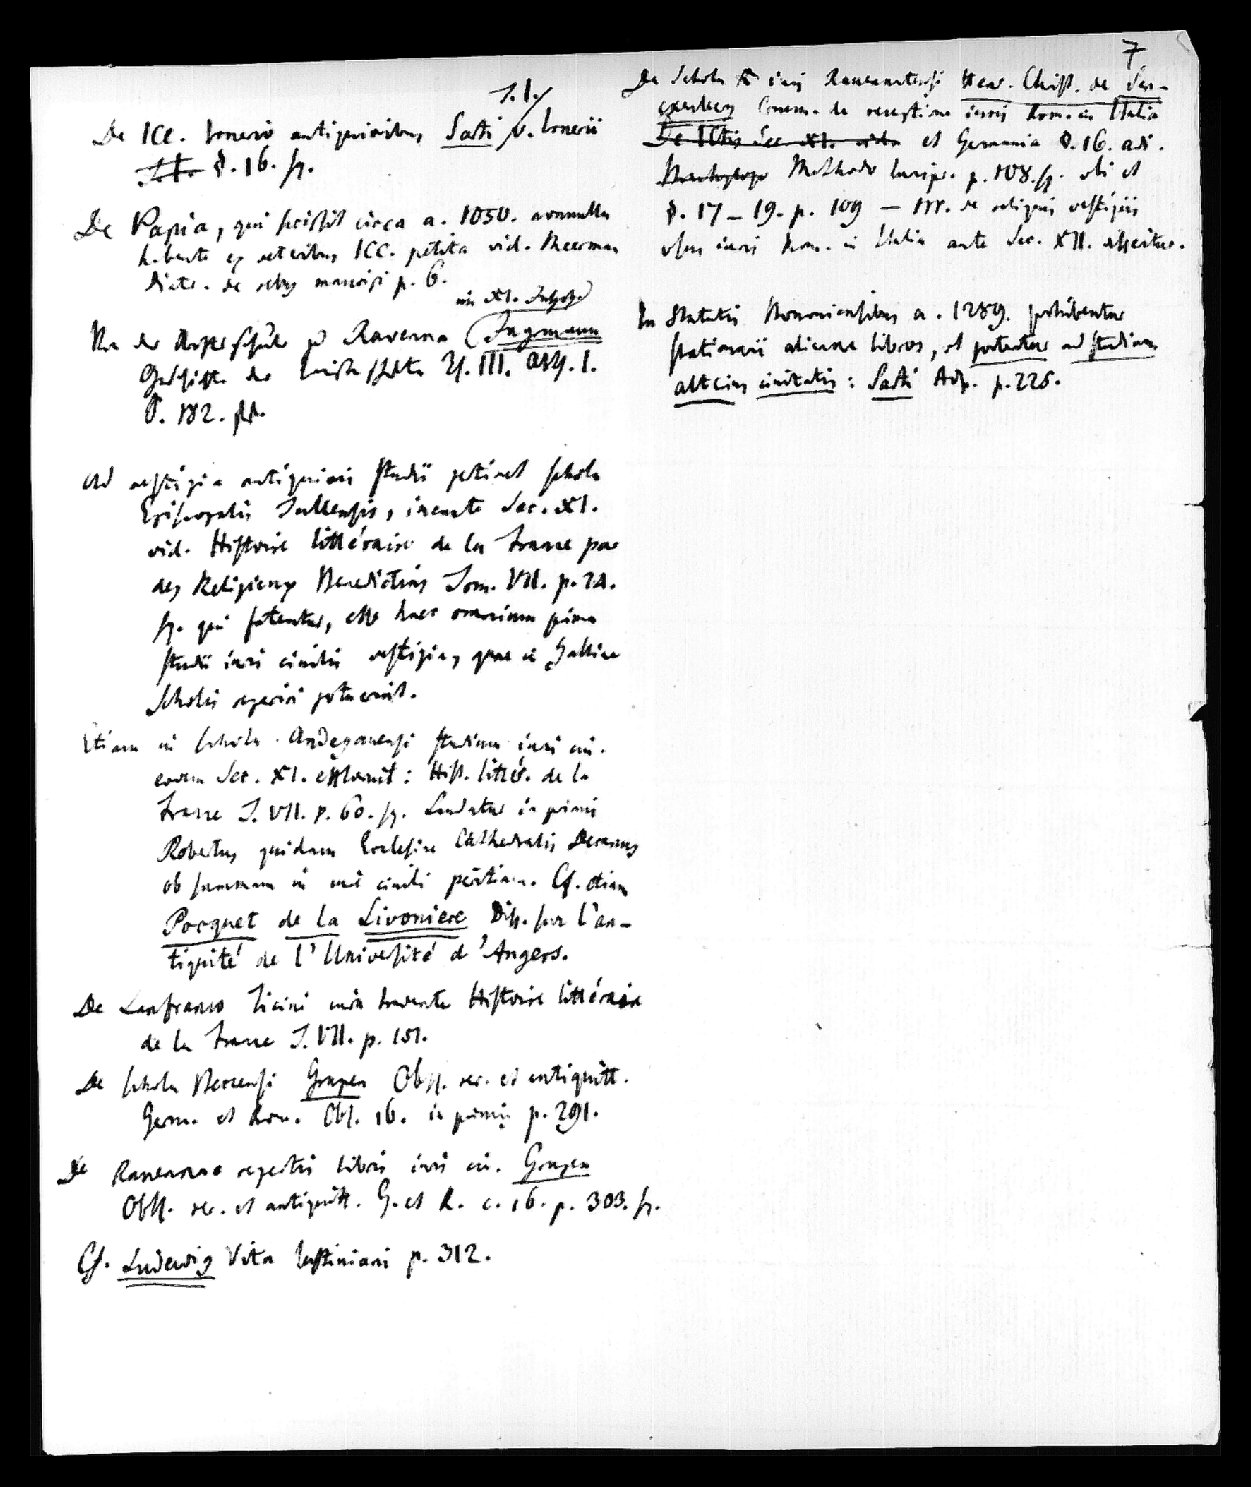 7
T. I.
De ICC. Irnerio antiquioribus Sarti v. Irnerii
§. 16. sq.
De Papia, qui scripsit circa a. 1050. nonnulla
habente ex veteribus ICC. petita vid. Meerman
Diatr. de rebus mancipi p. 6.
im XI. Jahrh.
Von der Rechtsschule zu Ravenna (Jugmann
Geschichte der Th. III. Abth. 1.
S. 182. ff.
Ad vestigia antiquioris studii pertinet schola
Episcopalis Tullensis, ineunte Sec. XI.
vid. Histoire littéraire de la France par
des Religieux Benedictins Tom. VII. p. 24.
sq. qui fatentur, esse haec omnium prima
studii iuris civilis vestigia, quae in Gallia
Scholis reperiri potuerint.
Etiam in schola Andegavensi studium iuris civ.
eodem Sec. XI. : Hist. littér. de la
France T. VII. p. 60. sq. Laudatur in primis
Robertus quidam Ecclesiae Cathedralis Decanus
ob summam in iure civili peritiam. Cf. etiam
Pocquet de la Livoniere Diss. sur l'an-
tiquité de l'Université d'Angers.
De Lanfranco Ticini iura docente Histoire littéraire
de la France T. VII. p. 151.
De schola Beccensi Grupen Obss. rer. et antiquitt.
Germ. et Rom. Obs. 16. in primis p. 291.
De Ravennae repertis libris iuris civ. Grupen
Obss. rer. et antiquitt. G. et R. c. 16. p. 303. sq.
Cf. Ludewig Vita Iustiniani p. 312.
De Schola iuris Ravennatensi Henr. Christ. de Sen-
ckenberg Comm. de receptione iuris Rom. in Italia
De ICtis Sec. XI. vid. et Germania §. 16. adi.
Methodo Iurispr. p. 108. sq. ubi et
§. 17 – 19. p. 109 – 111. de reliquis vestigiis
usus iuris Rom. in Italia ante Sec. XII. disseritur.
In Statutis Bononiensibus a. 1289. prohibentur
stationarii alienare libros, ut portentur ad studium
alterius civitatis: Sarti App. p. 225.